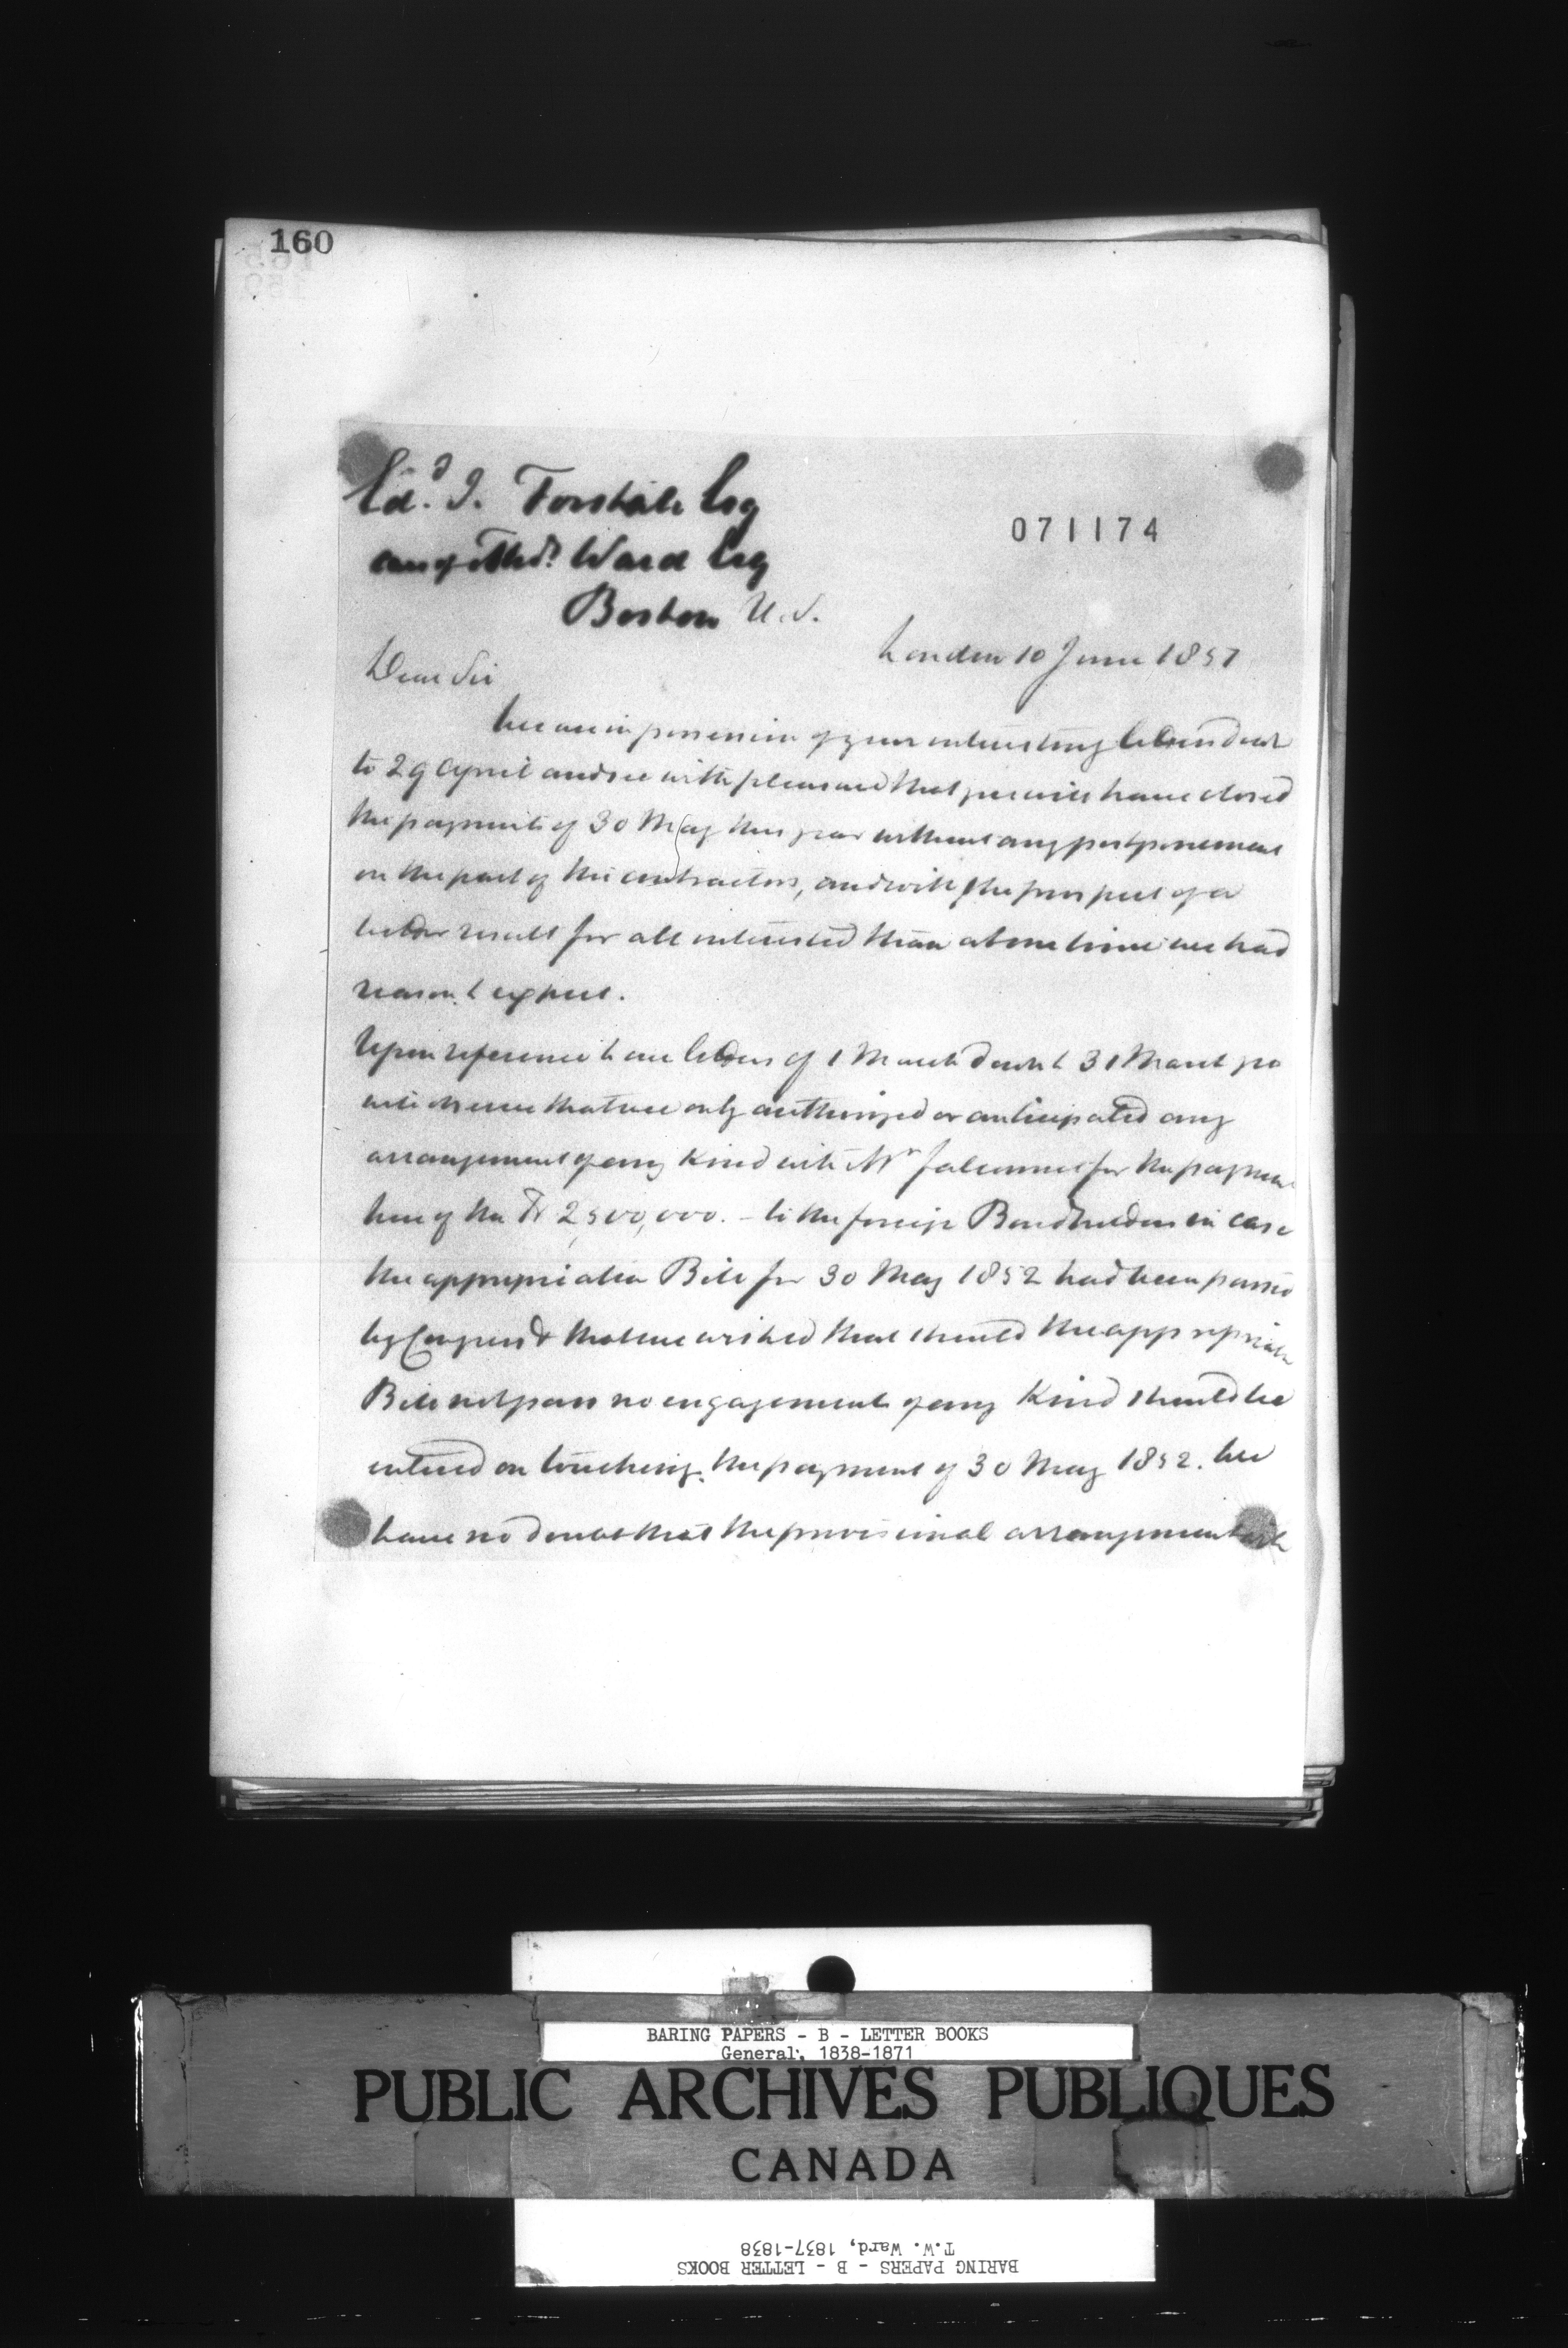 160
Ed.d J. Forstall Esq
care of Thos. Ward Esq
Boston U.S.
071174
London 10 June 1851
Dear Sir
We are in possession of your interesting letters down
to 29 April and see with pleasure that you will have closed
the payment of 30 May this year without any postponement
on the part of the contractors, and with the prospect of a
better result for all interested than at one time we had
reason to expect.
Upon reference to our letters of 1 March down to 31 March you
will observe that we only authorized or anticipated any
arrangement of any Kind with Mr Falconnet for the payment
here of the $ 2,500,000. – to the foreign Bondholders in case
the appropriation Bill for 30 May 1852 had been passed
by Congress & that we wished that should the appropriation
Bill not pass no engagement of any Kind should be
entered on touching the payment of 30 May 1852. We
have no doubt that the provisional arrangement with
BARING PAPERS - B - LETTER BOOKS
General, 1838-1871
PUBLIC ARCHIVES PUBLIQUES
CANADA
BARING PAPERS - B - LETTER BOOKS
T.W. Ward, 1837-1838